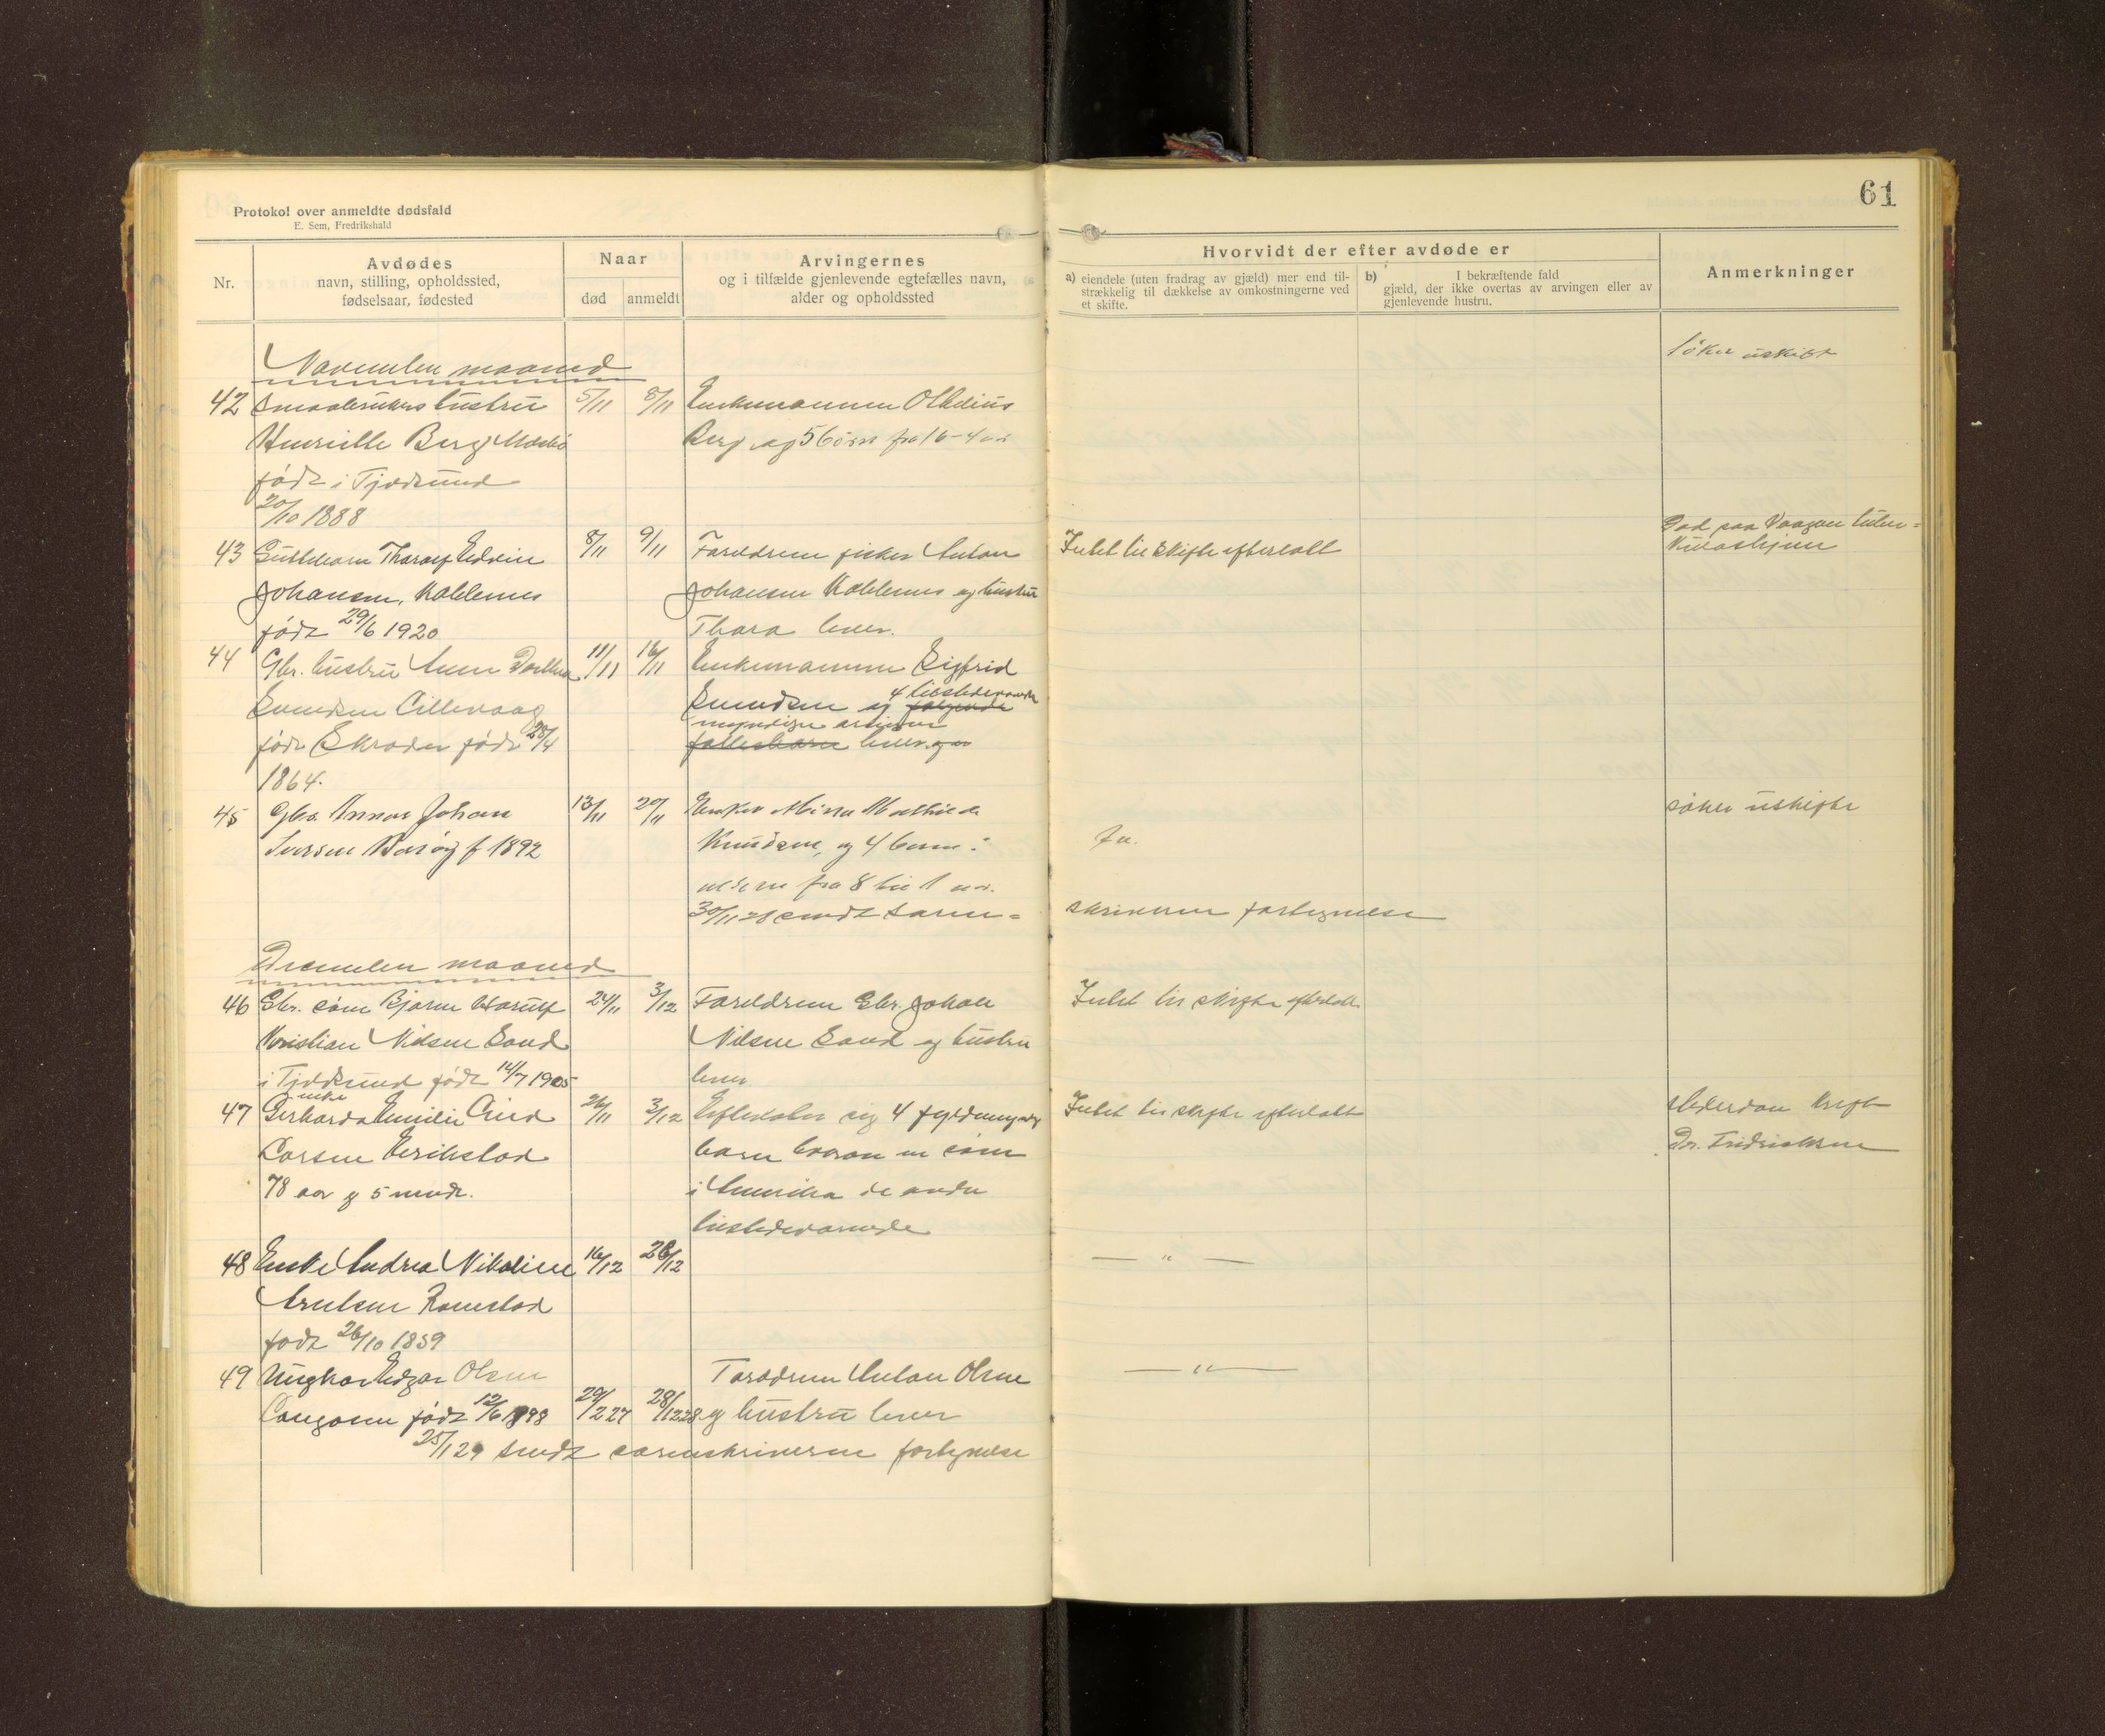 61
Protokol over anmeldte dødsfald
E. Sem, Fredrikshald
Nr.
Avdødes
navn, stilling, opholdssted,
fødselsaar, fødested
Naar
død
anmeldt
Arvingernes
og i tilfælde gjenlevende egtefælles navn,
alder og opholdssted
Hvorvidt der efter avdøde er
a) eiendele (uten fradrag av gjæld) mer end til-
strækkelig til dækkelse av omkostningerne ved
et skifte.
b) I bekræftende fald
gjæld, der ikke overtas av arvingen eller av
gjenlevende hustru.
Anmerkninger
November maaned
søker uskift
42 Smaabrukers hustru 5/11 8/11 Enkemannen
Berg og 5 børn fra 16-4 aar
født i Tjeldsund
20/10 1888
43 Guttebarn Edvin 8/11 9/11 Forældrene fisker Anton Intet til skifte efterlatt
Johansen, Johansen og hustru
født 29/6 1920 Thora lever.
44 Gbr. hustru Anne 11/11 16/11 Enkemannen Sigfrid
og 4 tilstedeværende
myndige arvinger
født 28/4
lever
1864.
45 Gbr. Johan 13/11 20/11 Enken søker uskifte
f 1892 Knudsen, og 4 barn i Ja.
alderen fra 8 til 1 aar.
30/11 28 sendt soren= skriveren fortegnelse
December maaned
46 Gbr. søn Bjarne 24/11 3/12 Forældrene Gbr. Johan Intet til skifte efterlatt
Kristian Nilsen Sand Nilsen Sand og hustru
i Tjeldsund født 14/7 1905 lever
enke
47 Gerharda Emilie 26/11 3/12 Efterlater sig 4 Intet til skifte efterlatt
Larsen Erikstad barn hvorav en søn
78 aar og 5 mndr. i Amerika de andre
tilstedeværende
48 Enke Andrea Nikoline 16/12 28/12 — " —
Arntsen Ramstad
født 26/10 1859
49 Ungkar Edgar Olsen Forældrene Anton Olsen — " —
født 12/6 1898 29/2 27 28/12 28 og hustru lever
25/1 29 sendt sorenskriveren fortegnelse